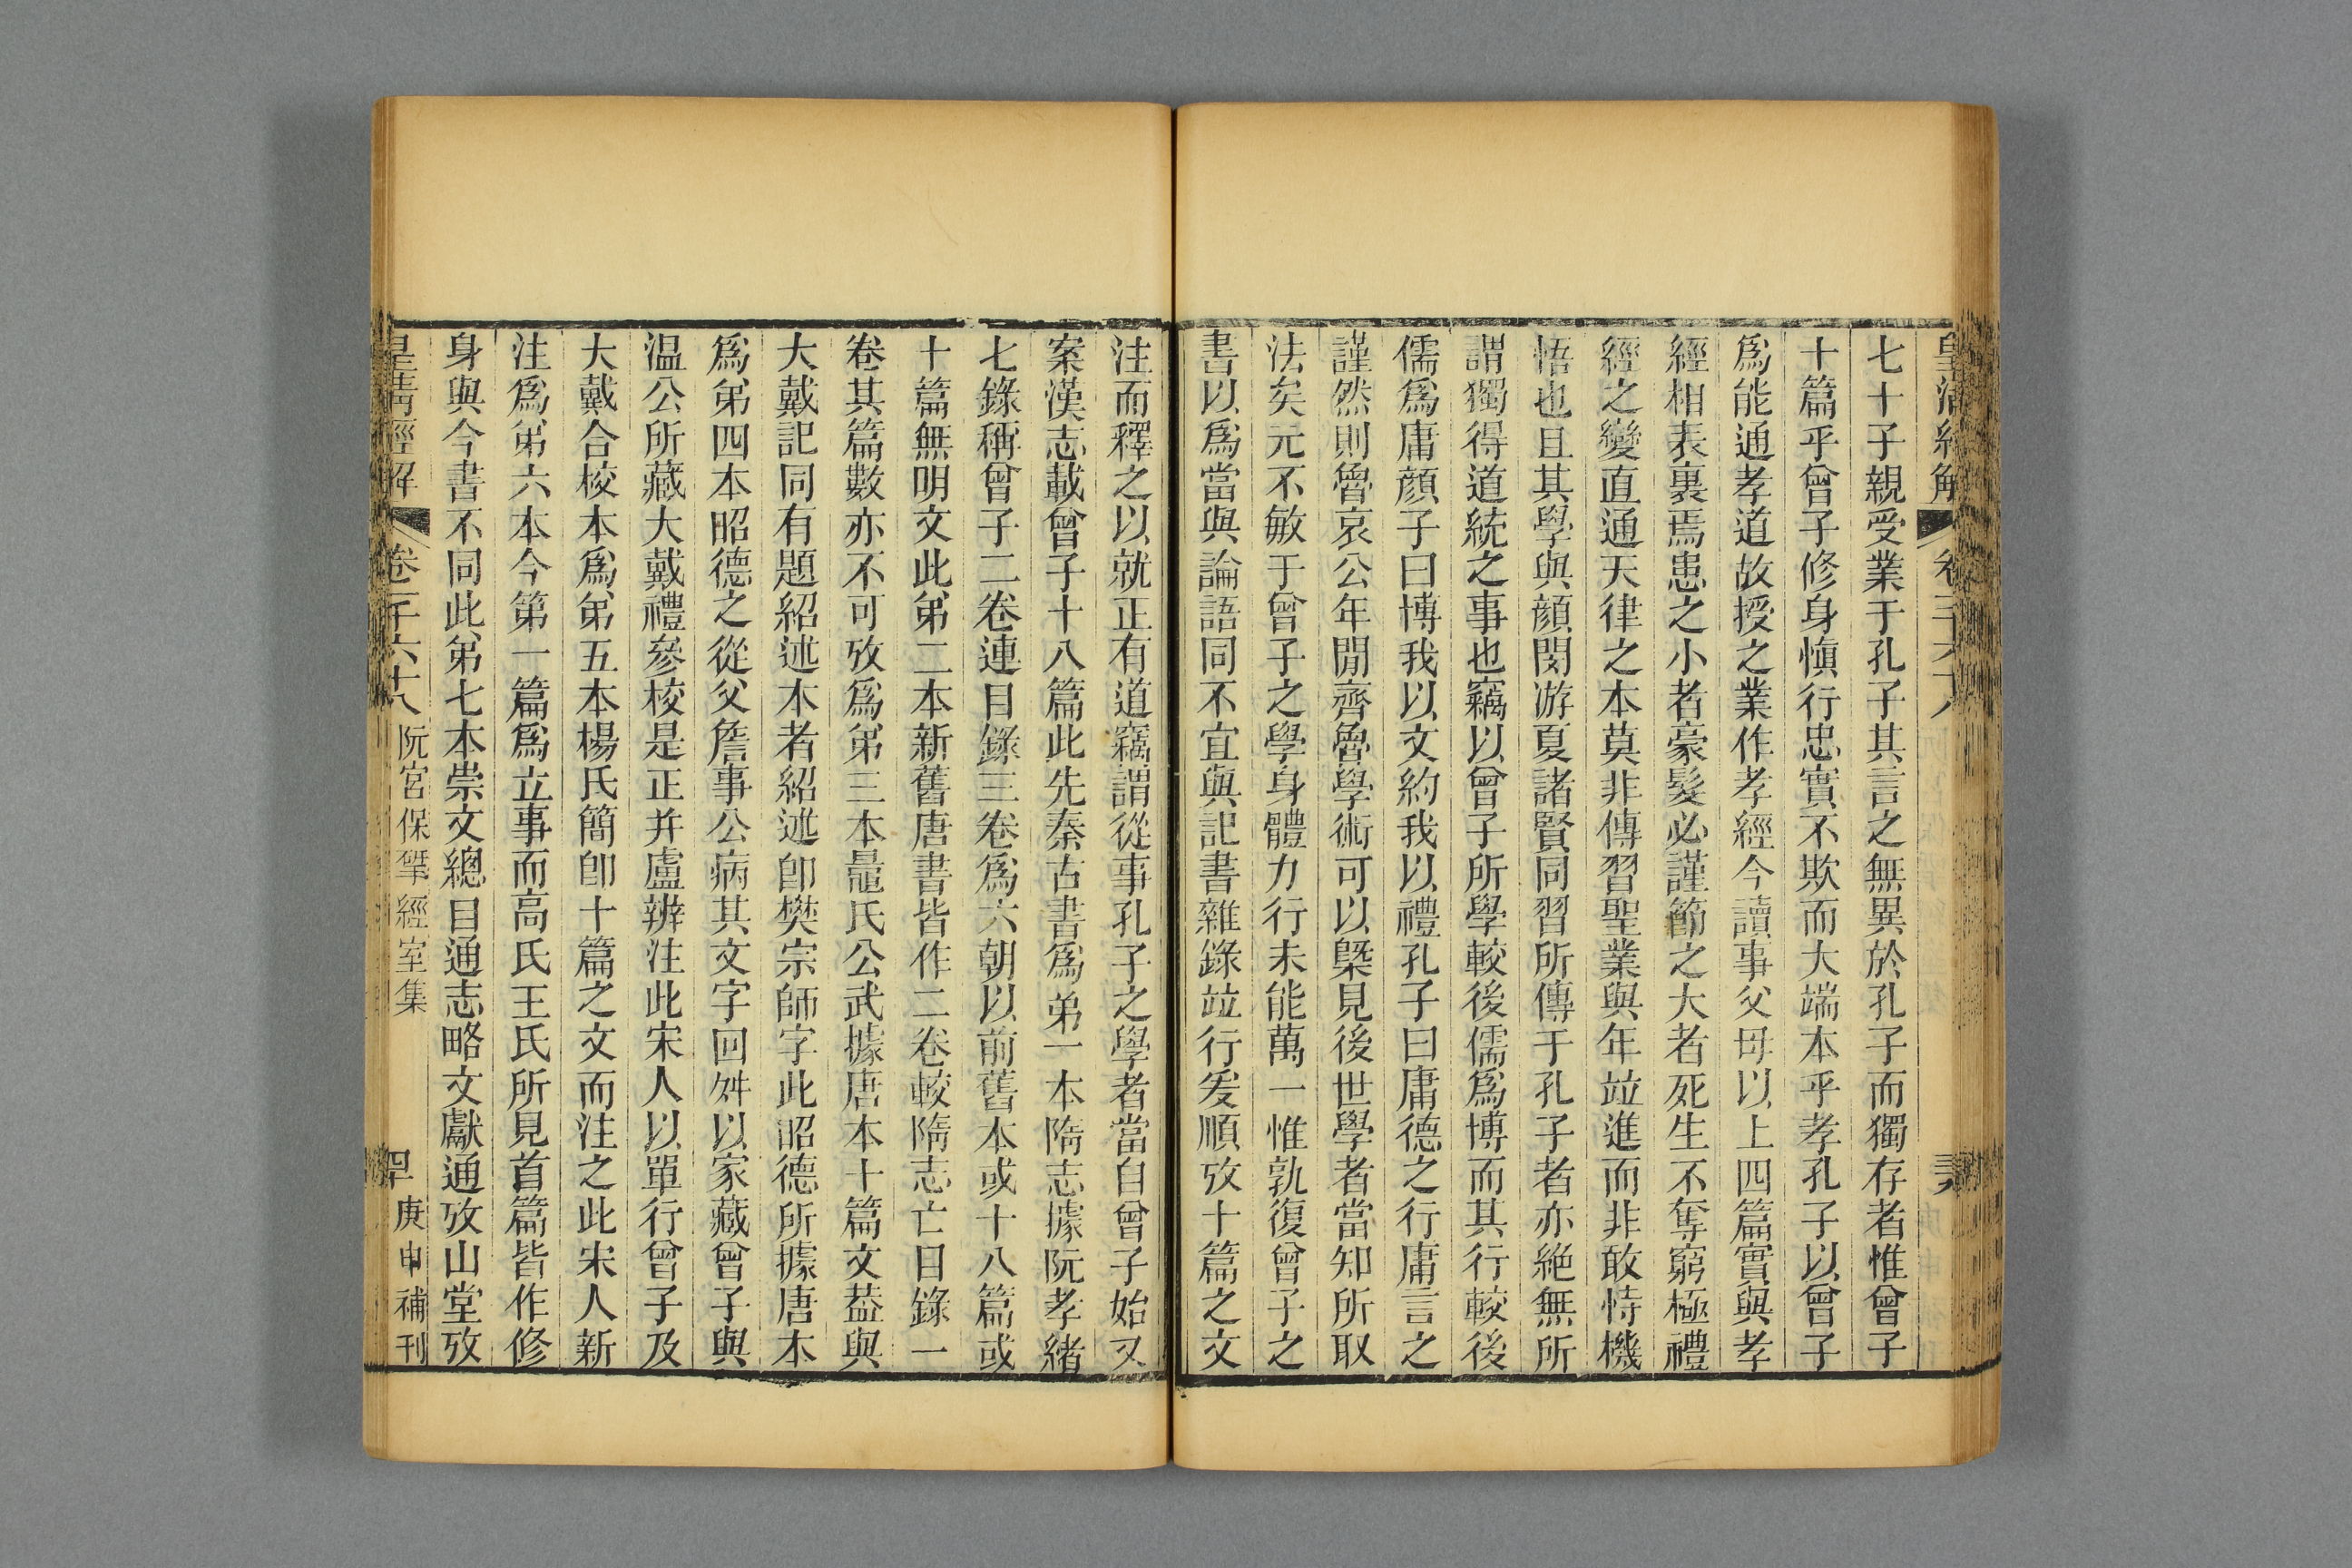 七十子親受業于孔子其言之無異於孔子而獨存者惟曾子
十篇乎曾子修身愼行忠實不欺而大端本乎孝孔子以曾子
爲能通孝道故授之業作孝經今讀事父母以上四篇實與孝
經相表裏焉患之小者豪髮必謹節之大者死生不奪窮極禮
經之變直通天律之本莫非傳習聖業與年竝進而非敢恃機
悟也且其學與顏閔游夏諸賢同習所傳于孔子者亦絕無所
謂獨得道統之事也竊以曾子所學較後儒爲博而其行較後
儒爲庸顏子曰博我以文約我以禮孔子曰庸德之行庸言之
謹然則魯哀公年閒齊魯學術可以槩見後世學者當知所取
法矣元不敏于曾子之學身體力行未能萬一惟孰復曾子之
書以爲當與論語同不宜與記書雜錄竝行爰順攷十篇之文
注而釋之以就正有道竊謂從事孔子之學者當自曾子始又
案漢志載曾子十八篇此先秦古書爲弟一本隋志據阮孝緒
七錄稱曾子二卷連目錄三卷爲六朝以前舊本或十八篇或
十篇無明文此弟二本新舊唐書皆作二卷較隋志亡目錄一
卷其篇數亦不可攷爲弟三本鼂氏公武據唐本十篇文葢與
大戴記同有題紹述本者紹述卽樊宗師字此昭德所據唐本
爲弟四本昭德之從父詹事公病其文字回舛以家藏曾子與
温公所藏大戴禮參校是正并盧辨注此宋人以單行曾子及
大戴合校本爲弟五本楊氏簡卽十篇之文而注之此宋人新
注爲弟六本今第一篇爲立事而高氏王氏所見首篇皆作修
身與今書不同此弟七本崇文總目通志略文獻通攷山堂攷
皇清經解 卷千六十八 阮宮保揅經室集 庚申補刊